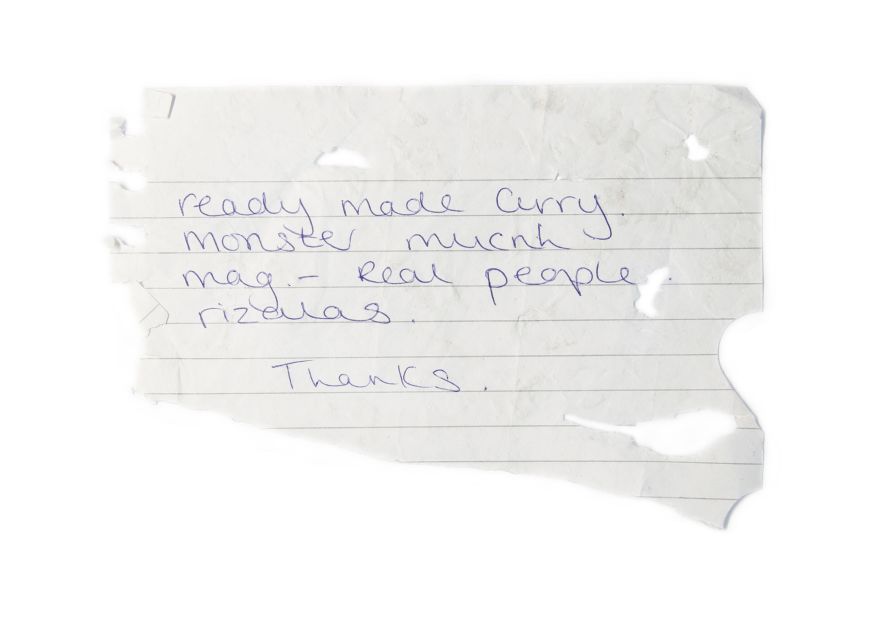 ready made Curry.
monster mucnh
mag. - Real people.
rizzlas.
Thanks.